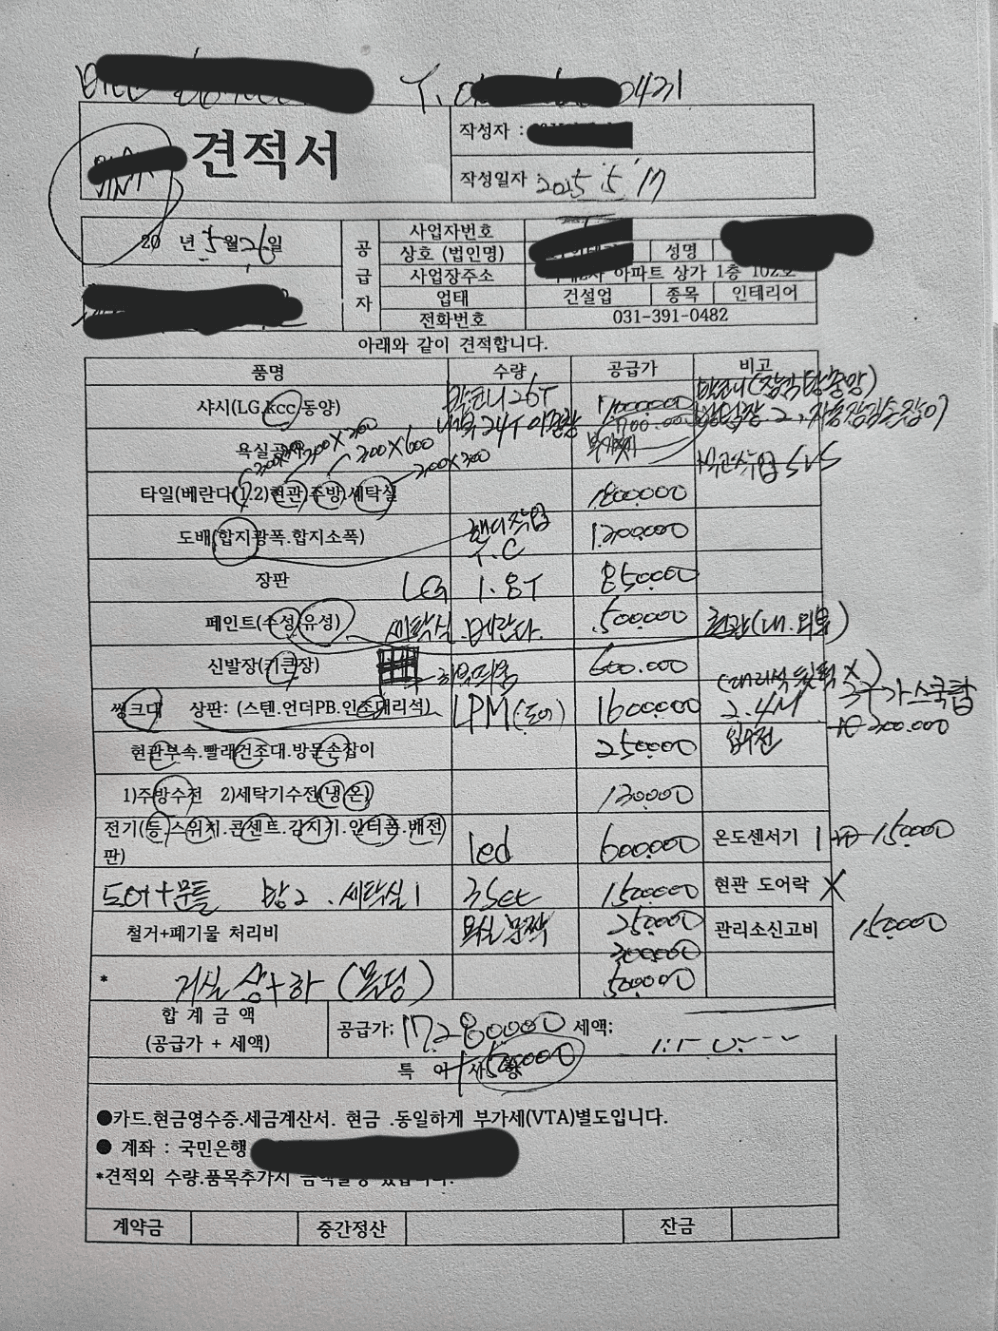 T. 0421
견적서
작성자 :
작성일자 : 2025. 5. 17
20 년 5월 26일
공급자
사업자번호
상호 (법인명) 성명
사업장주소 아파트 상가 1층 102호
업태 건설업 종목 인테리어
전화번호 031-391-0482
아래와 같이 견적합니다.
품명 수량 공급가 비고
샤시(LG.kcc.동양) 발코니 26T
24T 2, 자동잠김손잡이
욕실공사
200×200 300×300 300×600 200×200
타일(베란다(1.2)현관)주방.세탁실 1,800000
도배(합지광폭.합지소폭) 1200.000
장판 LG 1.8T 850000
페인트(수성(유성) 세탁실.베란다. 500000 현관(내.외부)
신발장(키큰장) 하부띄움 600.000
씽크대 상판: (스텐.언더PB.인조대리석) LPM(도어) 1600000 2.4M 3구가스쿡탑
200.000
현관부속.빨래건조대.방문손잡이 250000
1)주방수전 2)세탁기수전(냉온) 130000
전기(등.스위치.콘센트.감지기.인터폰.배전판) led 600000 온도센서기 1 150000
도어+문틀 방2. 세탁실1 3set 1,500000 현관 도어락 X
철거+폐기물 처리비 250000 관리소신고비 150000
300000
* 거실 상+하 (몰딩) 500000
합 계 금 액
(공급가 + 세액)
공급가: 17280000 세액:
특 사항
+500000
●카드.현금영수증.세금계산서. 현금 .동일하게 부가세(VTA)별도입니다.
● 계좌 : 국민은행
*견적외 수량.품목추가시
계약금 중간정산 잔금